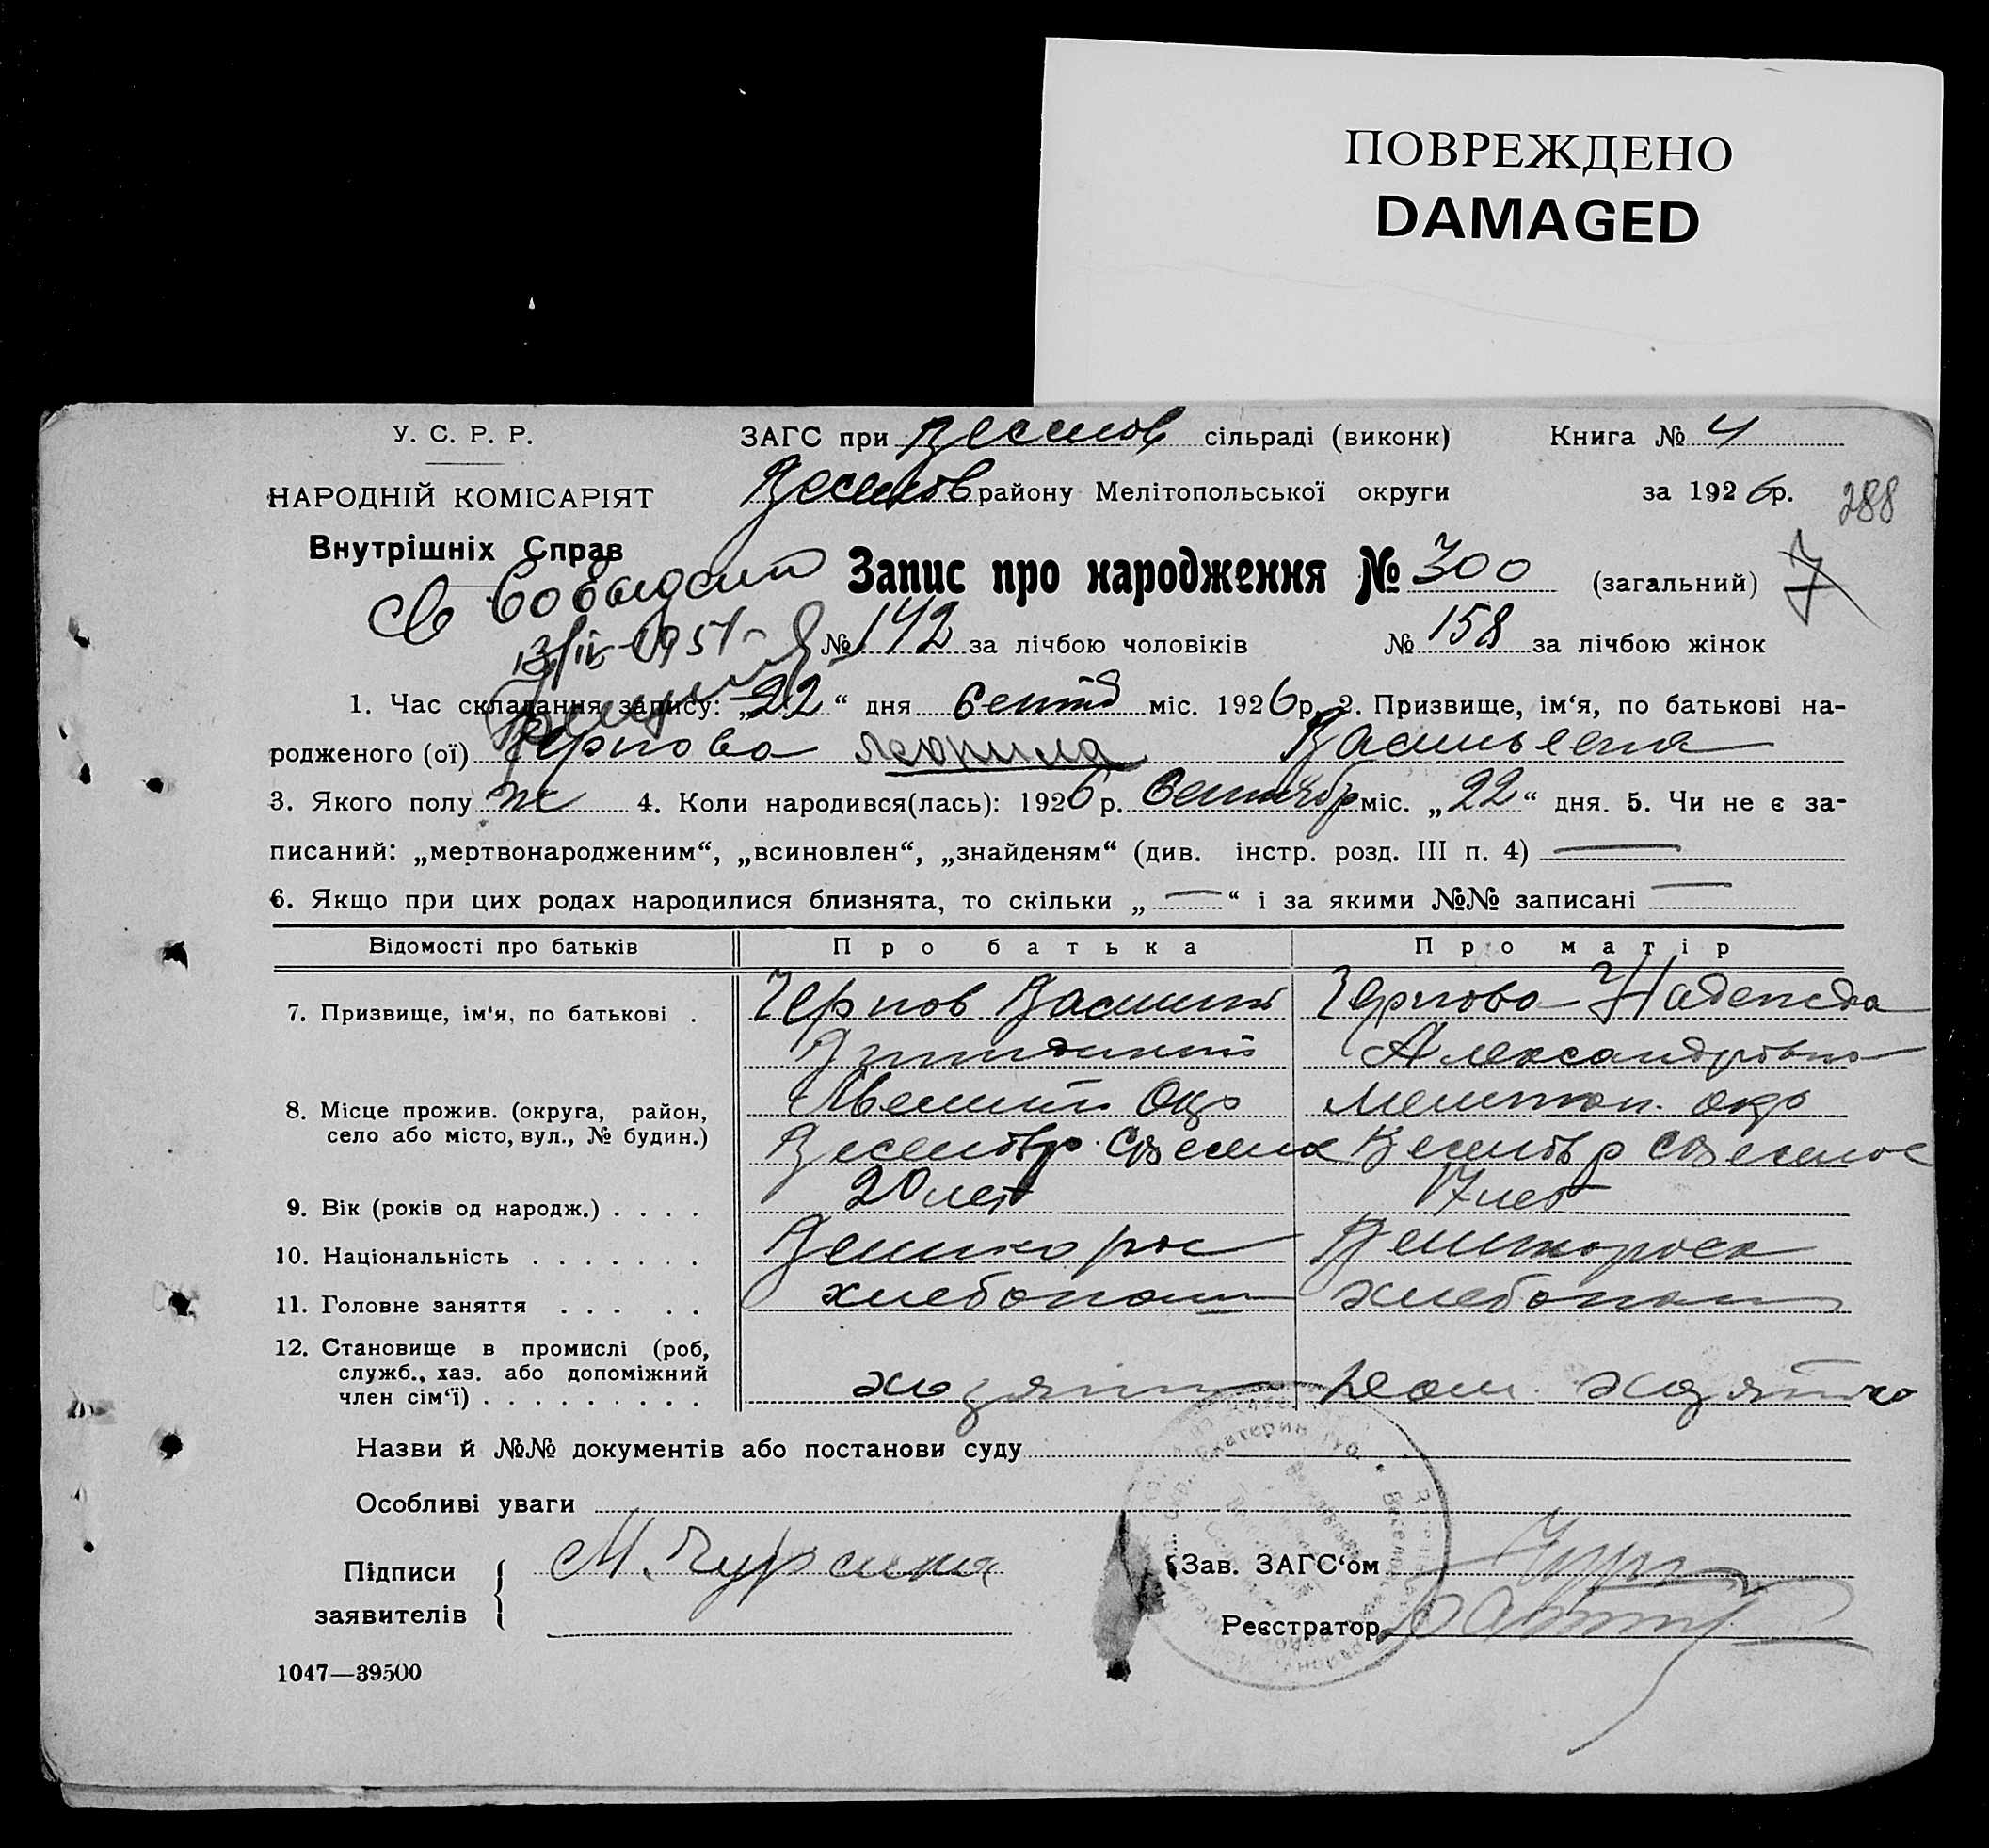 ПОВРЕЖДЕНО
DAMAGED
У. С. Р. Р.
ЗАГС при Веселов сільраді (виконк)
Книга № 4
НАРОДНІЙ КОМІСАРІЯТ
Веселов району Мелітопольської округи
за 1926 р.
288
Внутрішніх Справ
Св. выдано
Запис про народження № 300 (загальний)
7
№ 142 за лічбою чоловіків № 158 за лічбою жінок
1. Час складання запису: „22“ дня Сентяб міс. 1926 р. 2. Призвище, ім‘я, по батькові на-
родженого (ої) Чернова Людмила Васильевна
3. Якого полу ж 4. Коли народився(лась): 1926 р. Сентябр міс. „22“ дня. 5. Чи не є за-
писаний: „мертвонародженим“, „всиновлен“, „знайденям“ (див. інстр. розд. III п. 4) —
6. Якщо при цих родах народилися близнята, то скільки „—“ і за якими №№ записані —
Відомості про батьків Про батька Про матір
7. Призвище, ім‘я, по батькові . Чернов Василий Чернова Надежда
Александровна
8. Місце прожив. (округа, район, Окр Мелитоп. окр
село або місто, вул., № будин.) Веселов р. с Веселое Веселов р с Веселое
9. Вік (років од народж.) . . . . 20 лет 17 лет
10. Національність . . . . . . . Великорос Великороска
11. Головне заняття . . . . . хлебопаш хлебопаш
12. Становище в промислі (роб,
служб., хаз. або допоміжний
член сім‘ї) . . . . . . . . . . хозяин дом. хозяйка
Назви й №№ документів або постанови суду
Особливі уваги
Підписи
заявителів
М. Чурсина
Зав. ЗАГС‘ом
Реєстратор
1047—39500